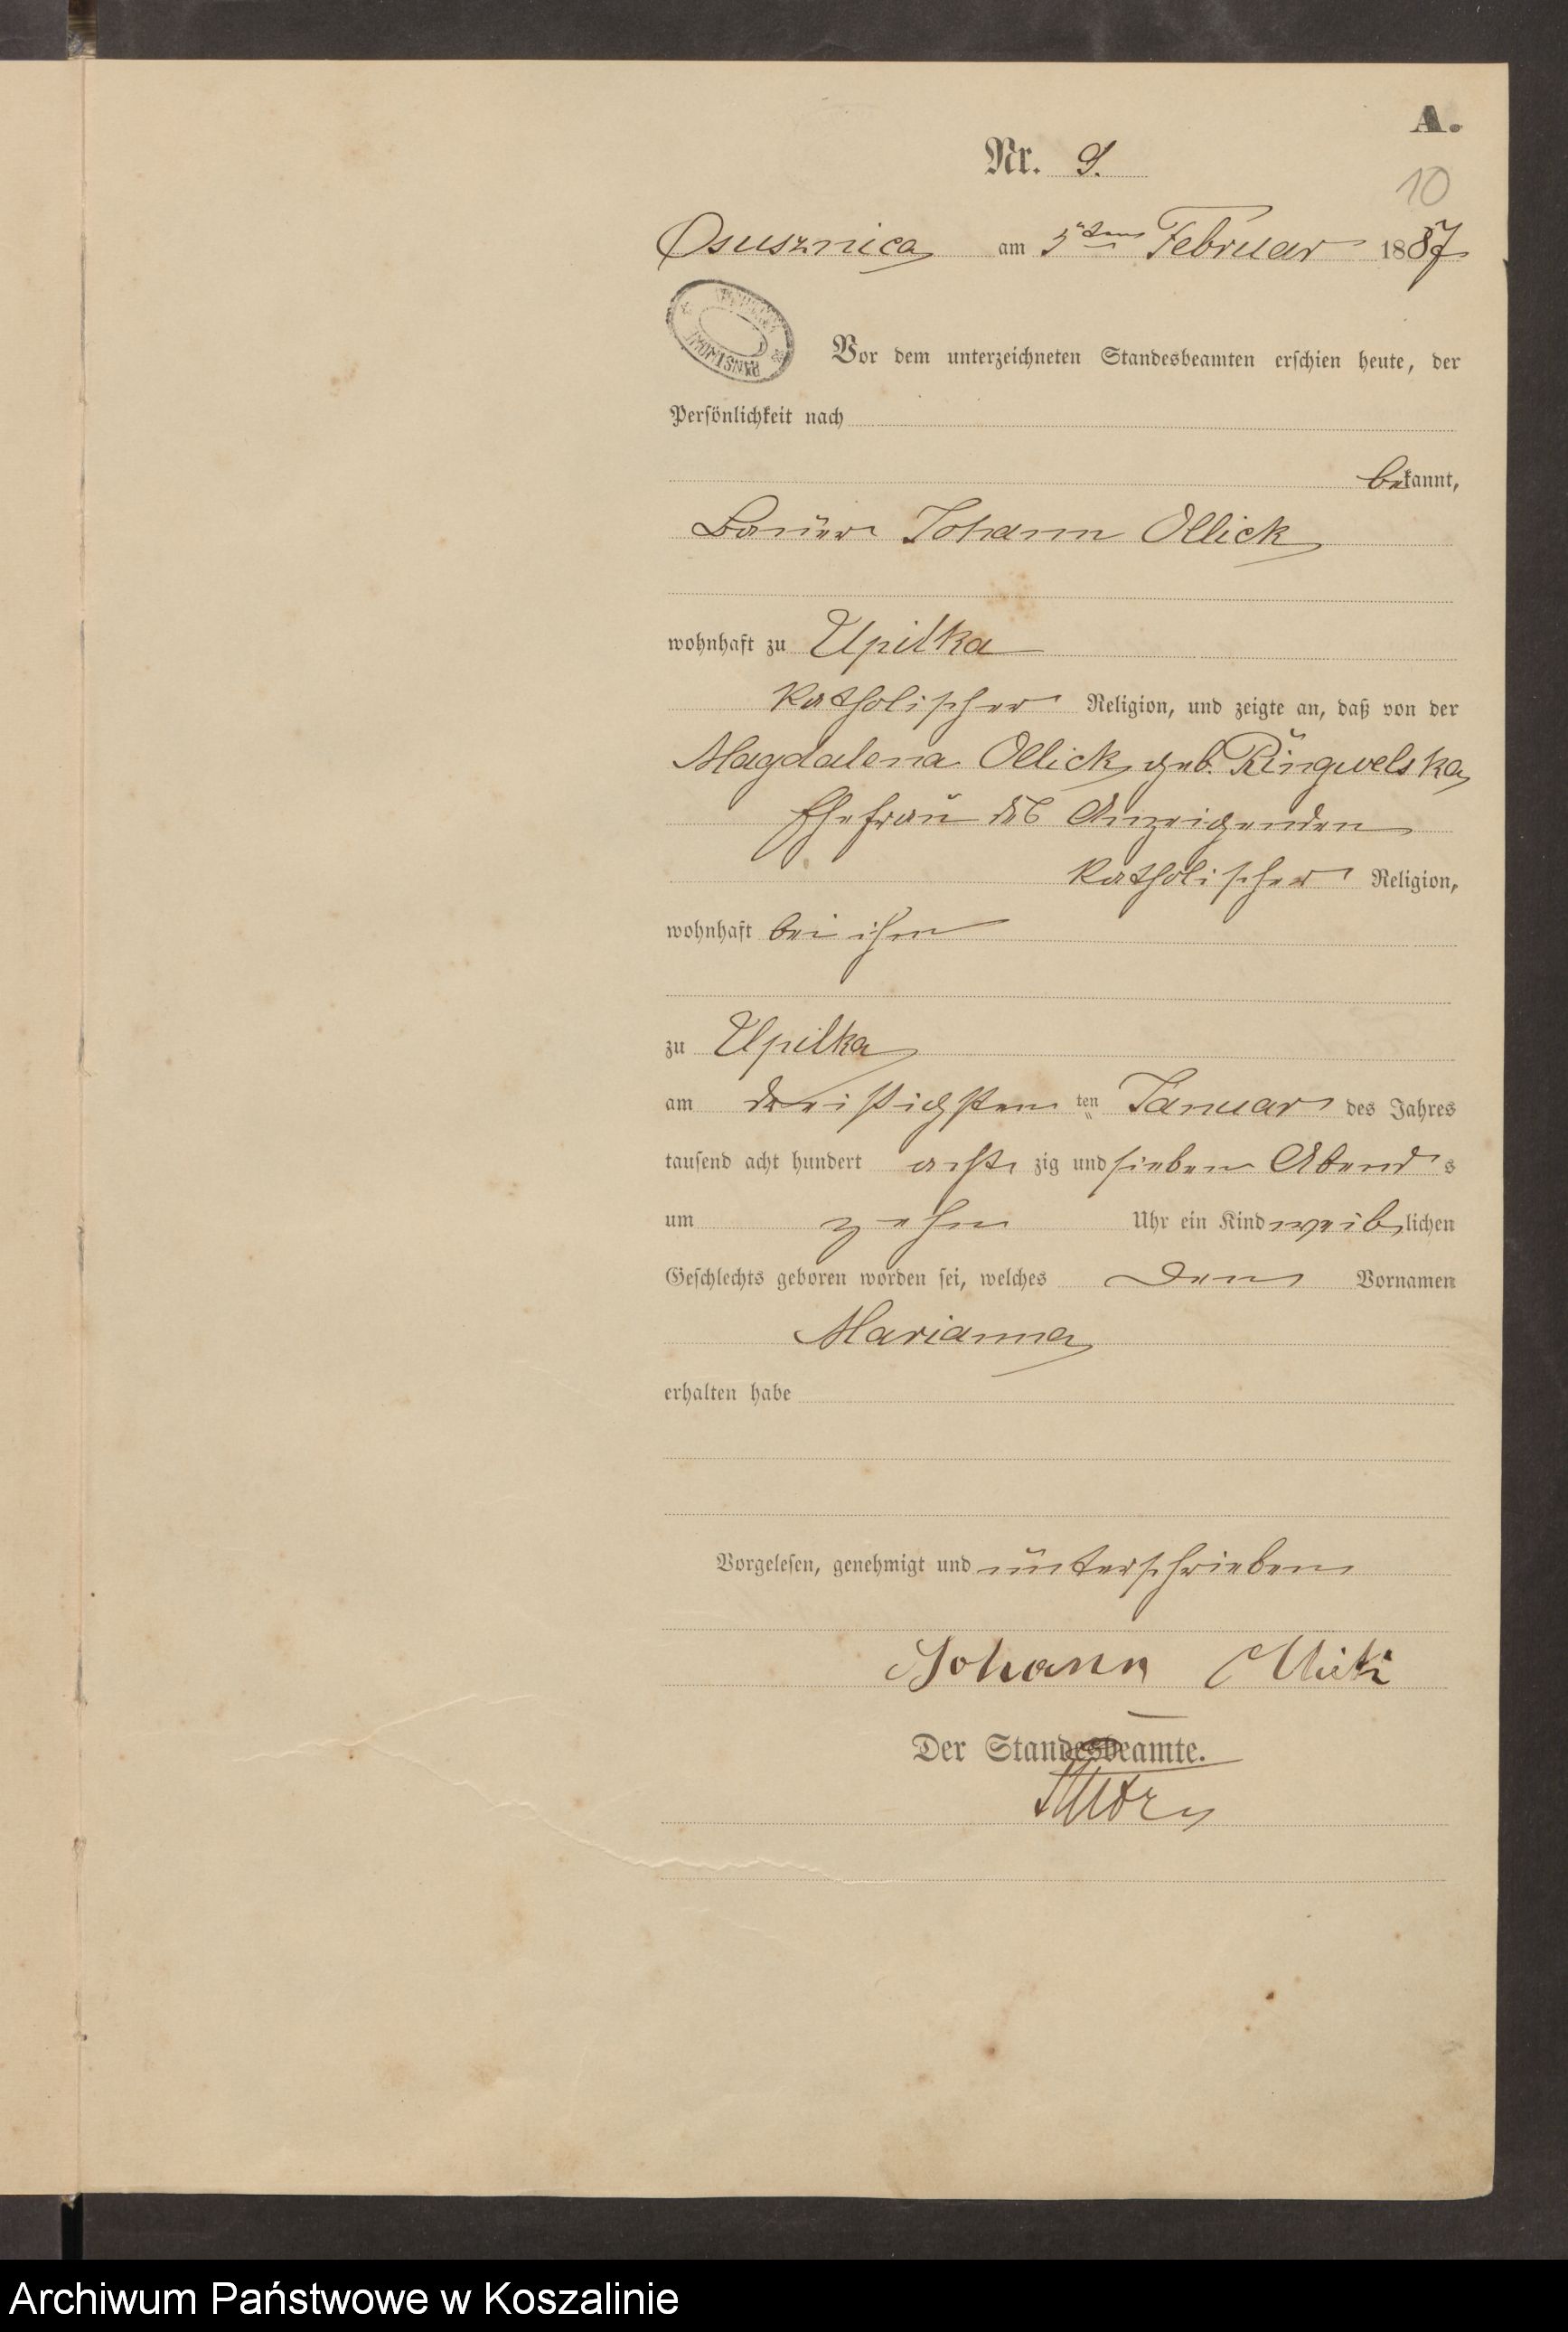 A.
Nr. 9.
10
Osusznica am 5ten Februar 1887
PAŃSTWOWE
Vor dem unterzeichneten Standesbeamten erschien heute, der
Persönlichkeit nach
bekannt,
Bauer Johann Ollick
wohnhaft zu Upilka
katholischer Religion, und zeigte an, daß von der
Magdalena Ollick geb.
Ehefrau des Anzeigenden
katholischer Religion,
wohnhaft bei ihm
zu Upilka
am dreißigsten ten Januar des Jahres
tausend acht hundert acht zig und sieben Abends
um zehn Uhr ein Kind weiblichen
Geschlechts geboren worden sei, welches den Vornamen
Marianna
erhalten habe
Vorgelesen, genehmigt und unterschrieben
Johann
Der Standesbeamte.
Archiwum Państwowe w Koszalinie